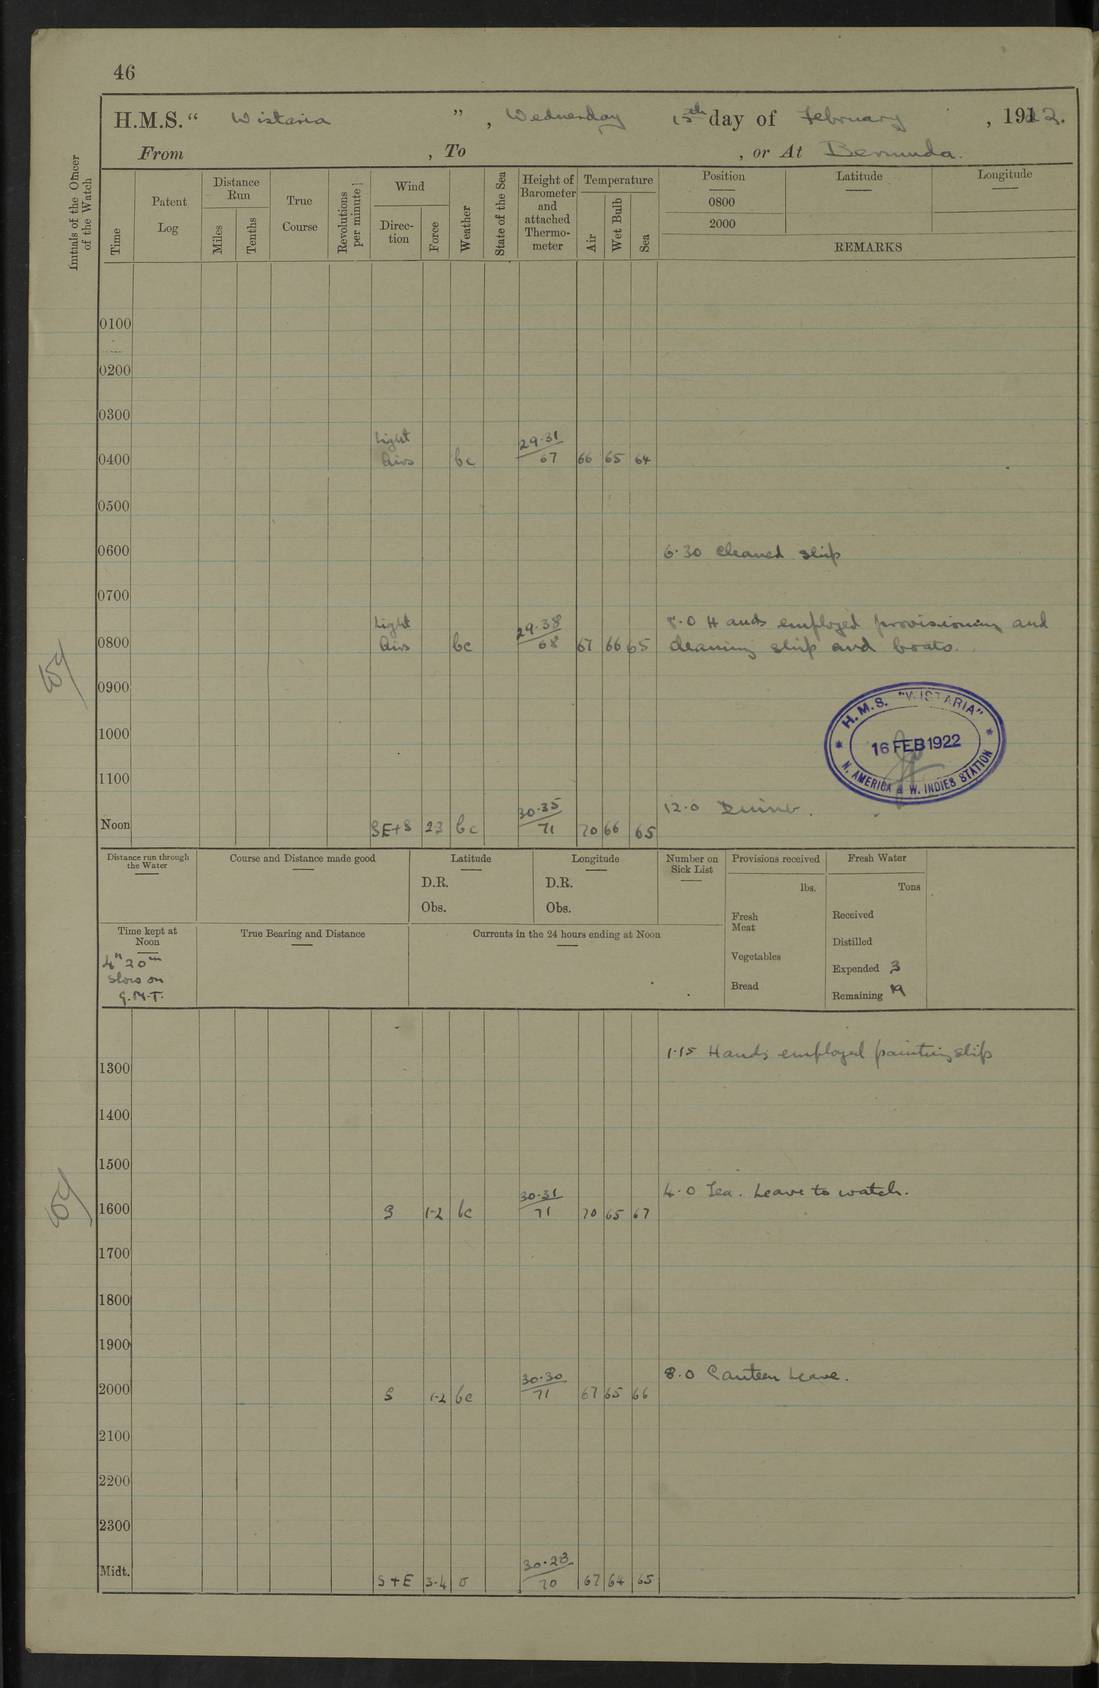 46
H.M.S. “ Wistaria ” , Wednesday 15th day of February , 1922.
From , To , or At Bermuda.
Initials of the Officer of the Watch
Time
Patent Log
Distance Run
Miles
Tenths
True Course
Revolutions per minute
Wind
Direc-tion
Force
Weather
State of the Sea
Height of Barometer and attached Thermo-meter
Temperature
Air
Wet Bulb
Sea
Position Latitude Longitude
0800
2000
REMARKS
0100
0200
0300
Light 29·31
0400 Airs bc 67 66 65 64
0500
0600 6·30 Cleaned ship
0700
Light 29·38 8·0 Hands employed provisioning and
0800 Airs bc 68 67 66 65 cleaning ship and boats.
0900
H.M.S. "WISTARIA"
16 FEB 1922
N. AMERICA & W. INDIES STATION
1000
1100
30·35 12·0 Dinner.
Noon SE+S 23 bc 71 70 66 65
Distance run through the Water
Course and Distance made good
Latitude
D.R.
Obs.
Longitude
D.R.
Obs.
Number on Sick List
Provisions received
lbs.
Fresh Meat
Vegetables
Bread
Fresh Water
Tons
Received
Distilled
Expended 3
Remaining 19
Time kept at Noon
4h 20m
Slow on
G.M.T.
True Bearing and Distance
Currents in the 24 hours ending at Noon
1·15 Hands employed painting ship
1300
1400
1500
30·31 4·0 Tea. Leave to watch.
1600 S 1-2 bc 71 70 65 67
1700
1800
1900
30·30 8·0 Canteen Leave.
2000 S 1-2 bc 71 67 65 66
2100
2200
2300
30·28
Midt. S+E 3-4 o 70 67 64 65